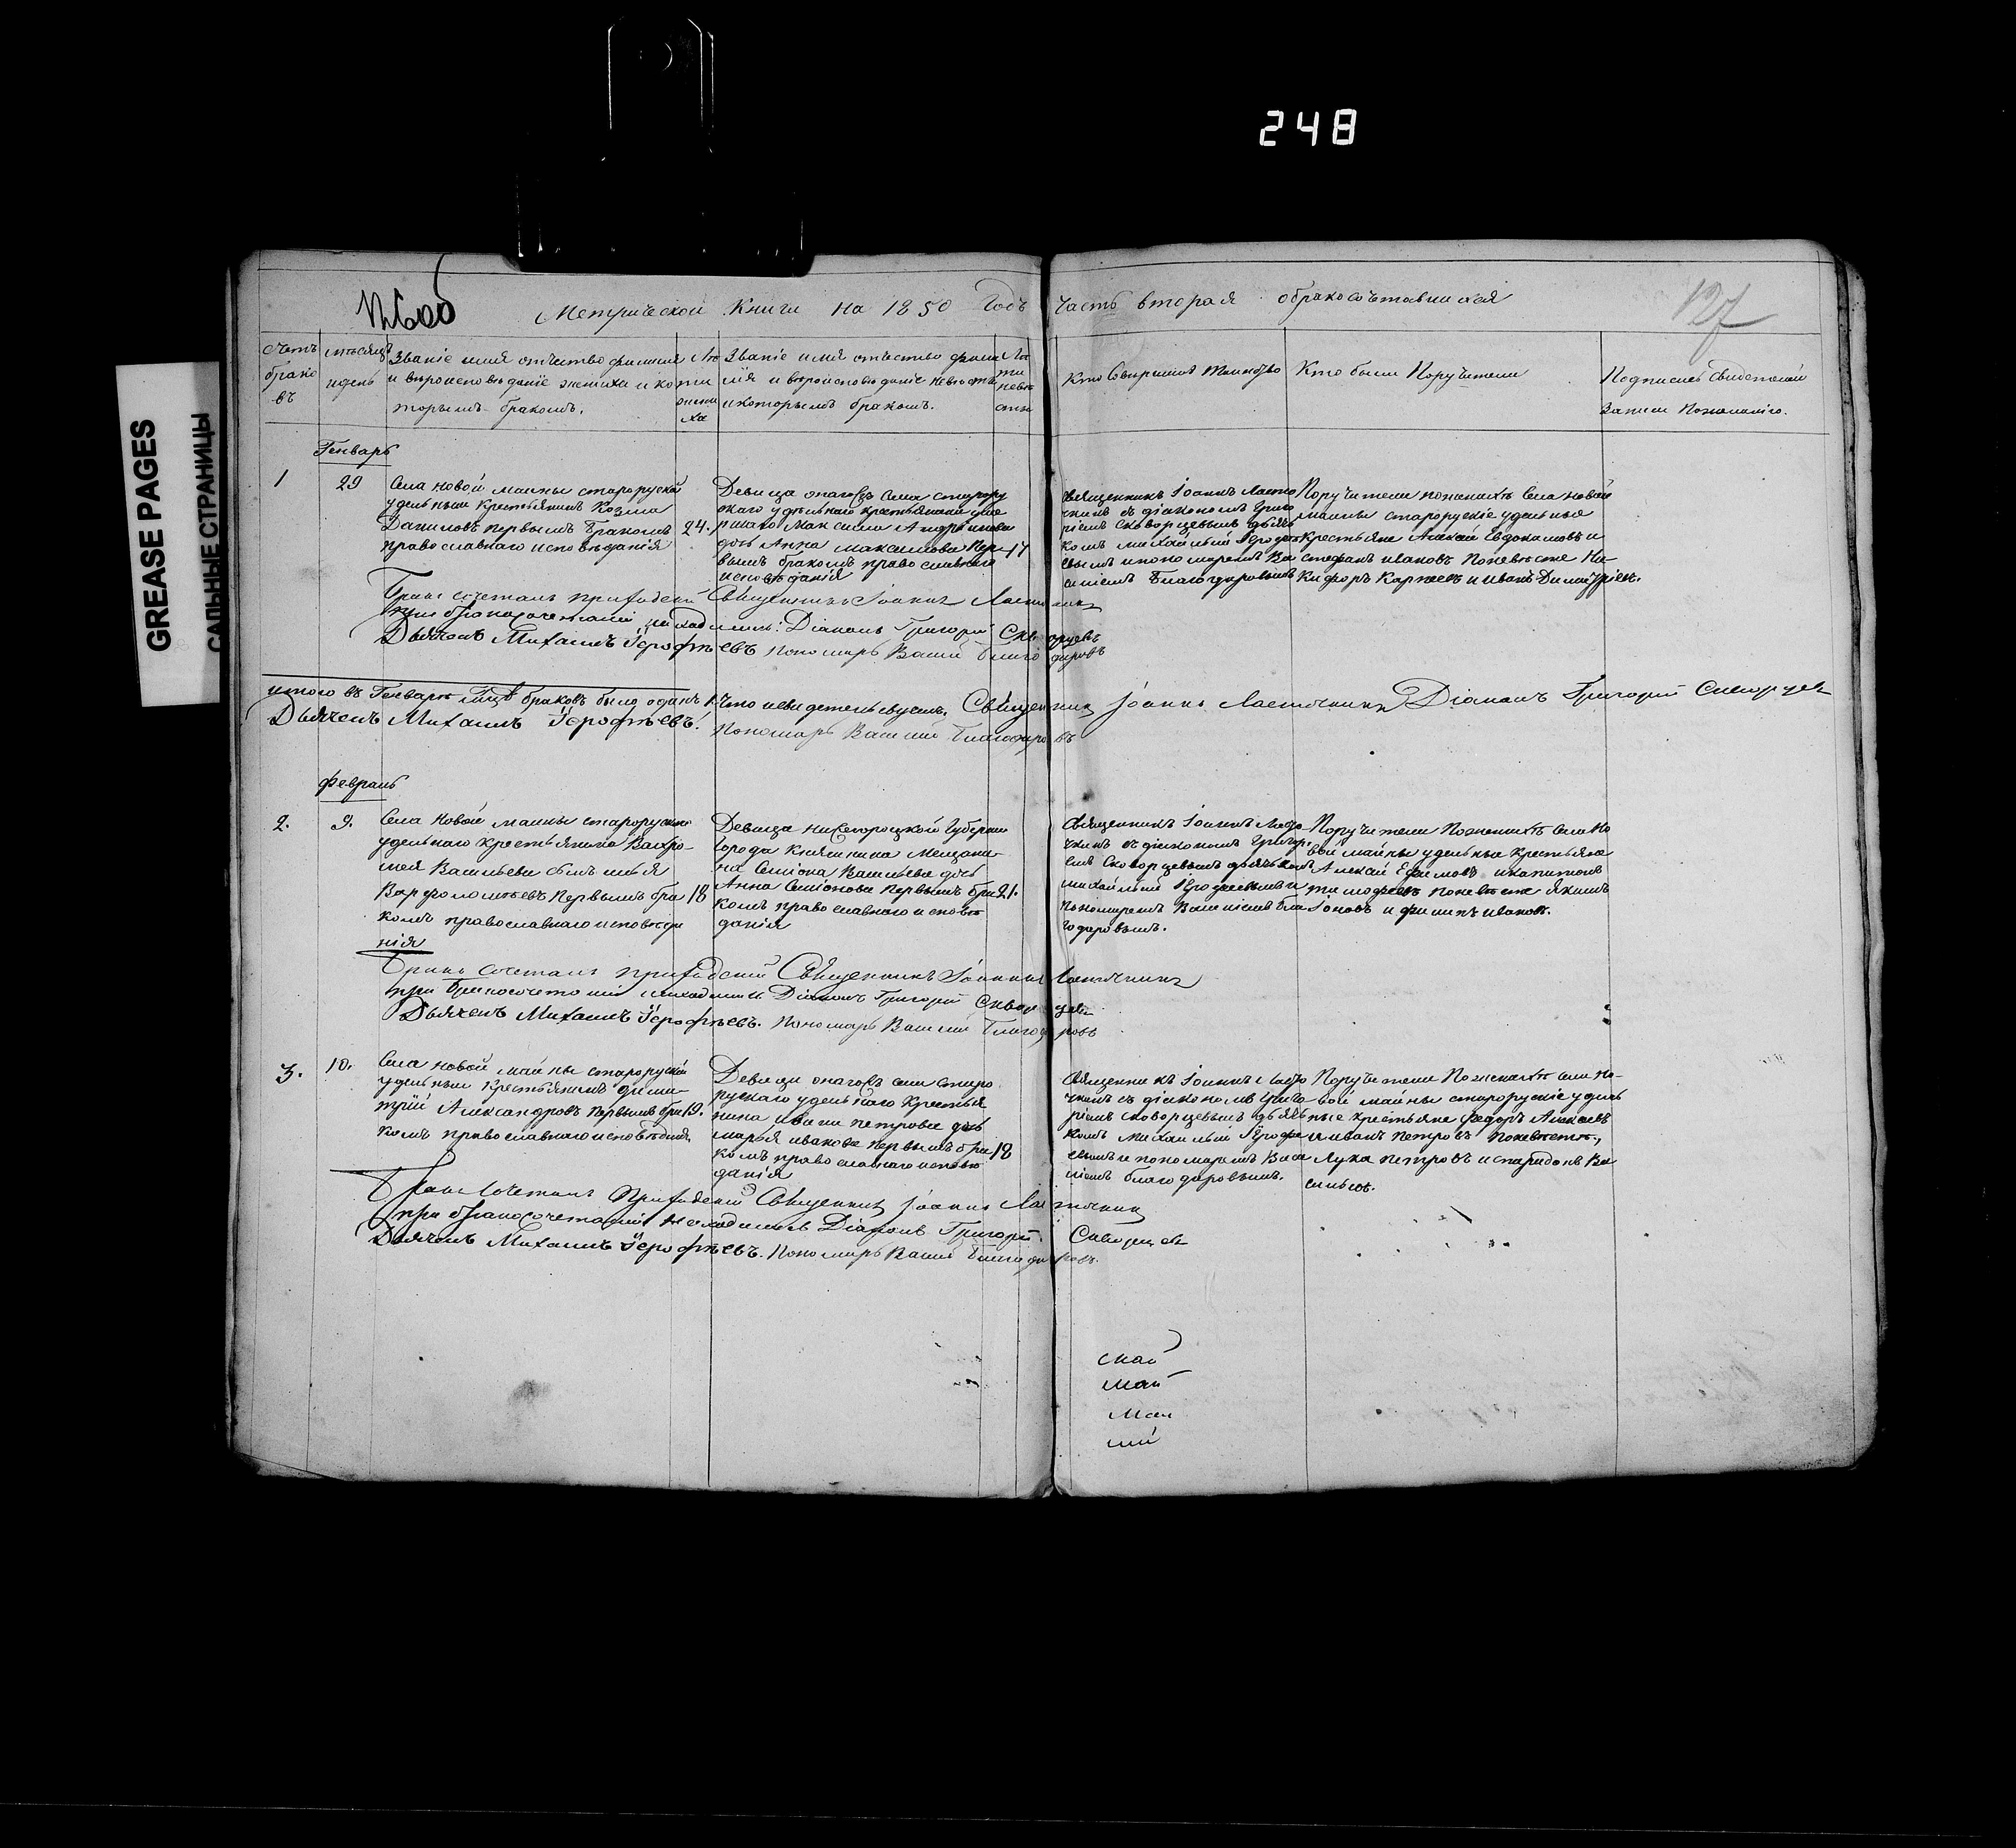 248
GREASE PAGES
САЛЬНЫЕ СТРАНИЦЫ
127
Метрической Книги на 1850 Годъ Часть вторая о бракосочетавшихся
Счетъ
брако
въ
мѣсяцъ
и день
Званіе имя отчество фамилія
и вѣроисповѣданіе жениха и ко
торымъ бракомъ.
Лѣ
ти
жени
ха
Званіе имя отчество фами
лія и вѣроисповѣданіе невѣсты
и которымъ бракомъ.
Лѣ
ти
невѣ
сты
Кто Совершилъ Таинство
Кто были Поручители
Подписъ Свидетелей
Записи Пожеланію.
Генварь
1
29
Села новой маины староруской
удельныи Крестьянинъ Козма
Даниловъ первымъ Бракомъ
православнаго исповѣданія
24.
Девица онагожъ Села старору
скаго удѣльнаго крестьянина уме
ршаго Максима Андреянова
дочь Анна Максимова Пер
вымъ бракомъ православнаго
исповѣданія
17
Священникъ Іоаннъ Ласто
чкинъ съ діакономъ Григо
ріемъ Скворцевымъ дьячь
комъ михаиломъ Герофѣ
евымъ и пономаремъ Ва
силіемъ Благодаровымъ
Поручители по женихѣ Села новой
маины старорускіе удельные
Крестьяне Алексѣй Евдокимовъ и
стефанъ ивановъ Поневѣсте Ни
кифоръ Карпеевъ и иванъ Димитріевъ.
Бракъ сочеталъ приходскій Священникъ Іоаннъ Ласточкинъ
при бракосочетаніи находились: Діаконъ Григорій Скворцевъ
Дьячекъ Михаилъ Герофѣевъ Пономарь Василій Благодаровъ
итого въ Генварѣ мцѣ браковъ было одинъ 1. Что и свидетельствуемъ. Священникъ Іоаннъ Ласточкинъ Діаконъ Григорій Скворцевъ
Дьячекъ Михаилъ Герофѣевъ. Пономарь Василій Благодаровъ
февраль
2.
9.
Села Новой маины старорускаго
удельнаго крестьянина Вахро
мея Васильева сынъ
Варфоломѣевъ Первымъ бра
комъ православнаго исповѣда
нія
18
Девица нижегороцкой Губерніи
города Княгинина Мещани
на Симіона Васильева дочь
Анна Симіонова первымъ бра
комъ православнаго исповѣ
данія
21.
Священникъ Іоаннъ Ласто
чкинъ съ діакономъ Григор
емъ Скворцевымъ дьячькомъ
михаиломъ Герофеевымъ и
пономаремъ Василіемъ Бла
годаровымъ.
Поручители Поженихѣ Села Но
вой маины удельные крестьяне
Алексѣй Ефимовъ и капитонъ
тимофеевъ Поневѣсте Якимъ
Іоновъ и филипъ ивановъ.
Бракъ сочеталъ приходскій Священникъ Іоаннъ Ласточкинъ
при бракосочетаніи находились Діаконъ Григорій Скворцевъ
Дьячекъ Михаилъ Герофѣевъ. Пономарь Василій Благодаровъ
3.
10.
Села новой маины староруской
удельныи крестьянинъ дими
трій Александровъ первымъ бра
комъ православнаго исповѣданія.
19.
Девица онагожъ села старо
рускаго удельнаго Крестья
нина ивана петрова дочь
марья иванова первымъ бра
комъ православнаго исповѣ
данія
18
Священникъ Іоаннъ Ласто
чкинъ съ діакономъ Григо
ріемъ скворцевымъ дьячь
комъ михаиломъ Герофе
евымъ и пономаремъ Васи
ліемъ благодаровымъ.
Поручители Поженихѣ села Но
вой маины старорускіе удель
ные крестьяне федоръ Алексѣевъ
и иванъ петровъ поневѣстѣ,
Лука петровъ и спиридонъ Ва
сильевъ.
Бракъ Сочеталъ Приходскій Священникъ Іоаннъ Ласточкинъ
при бракосочетаніи находились Діаконъ Григорій Скворцевъ
Дьячекъ Михаилъ Герофѣевъ. Пономарь Василій Благодаровъ.